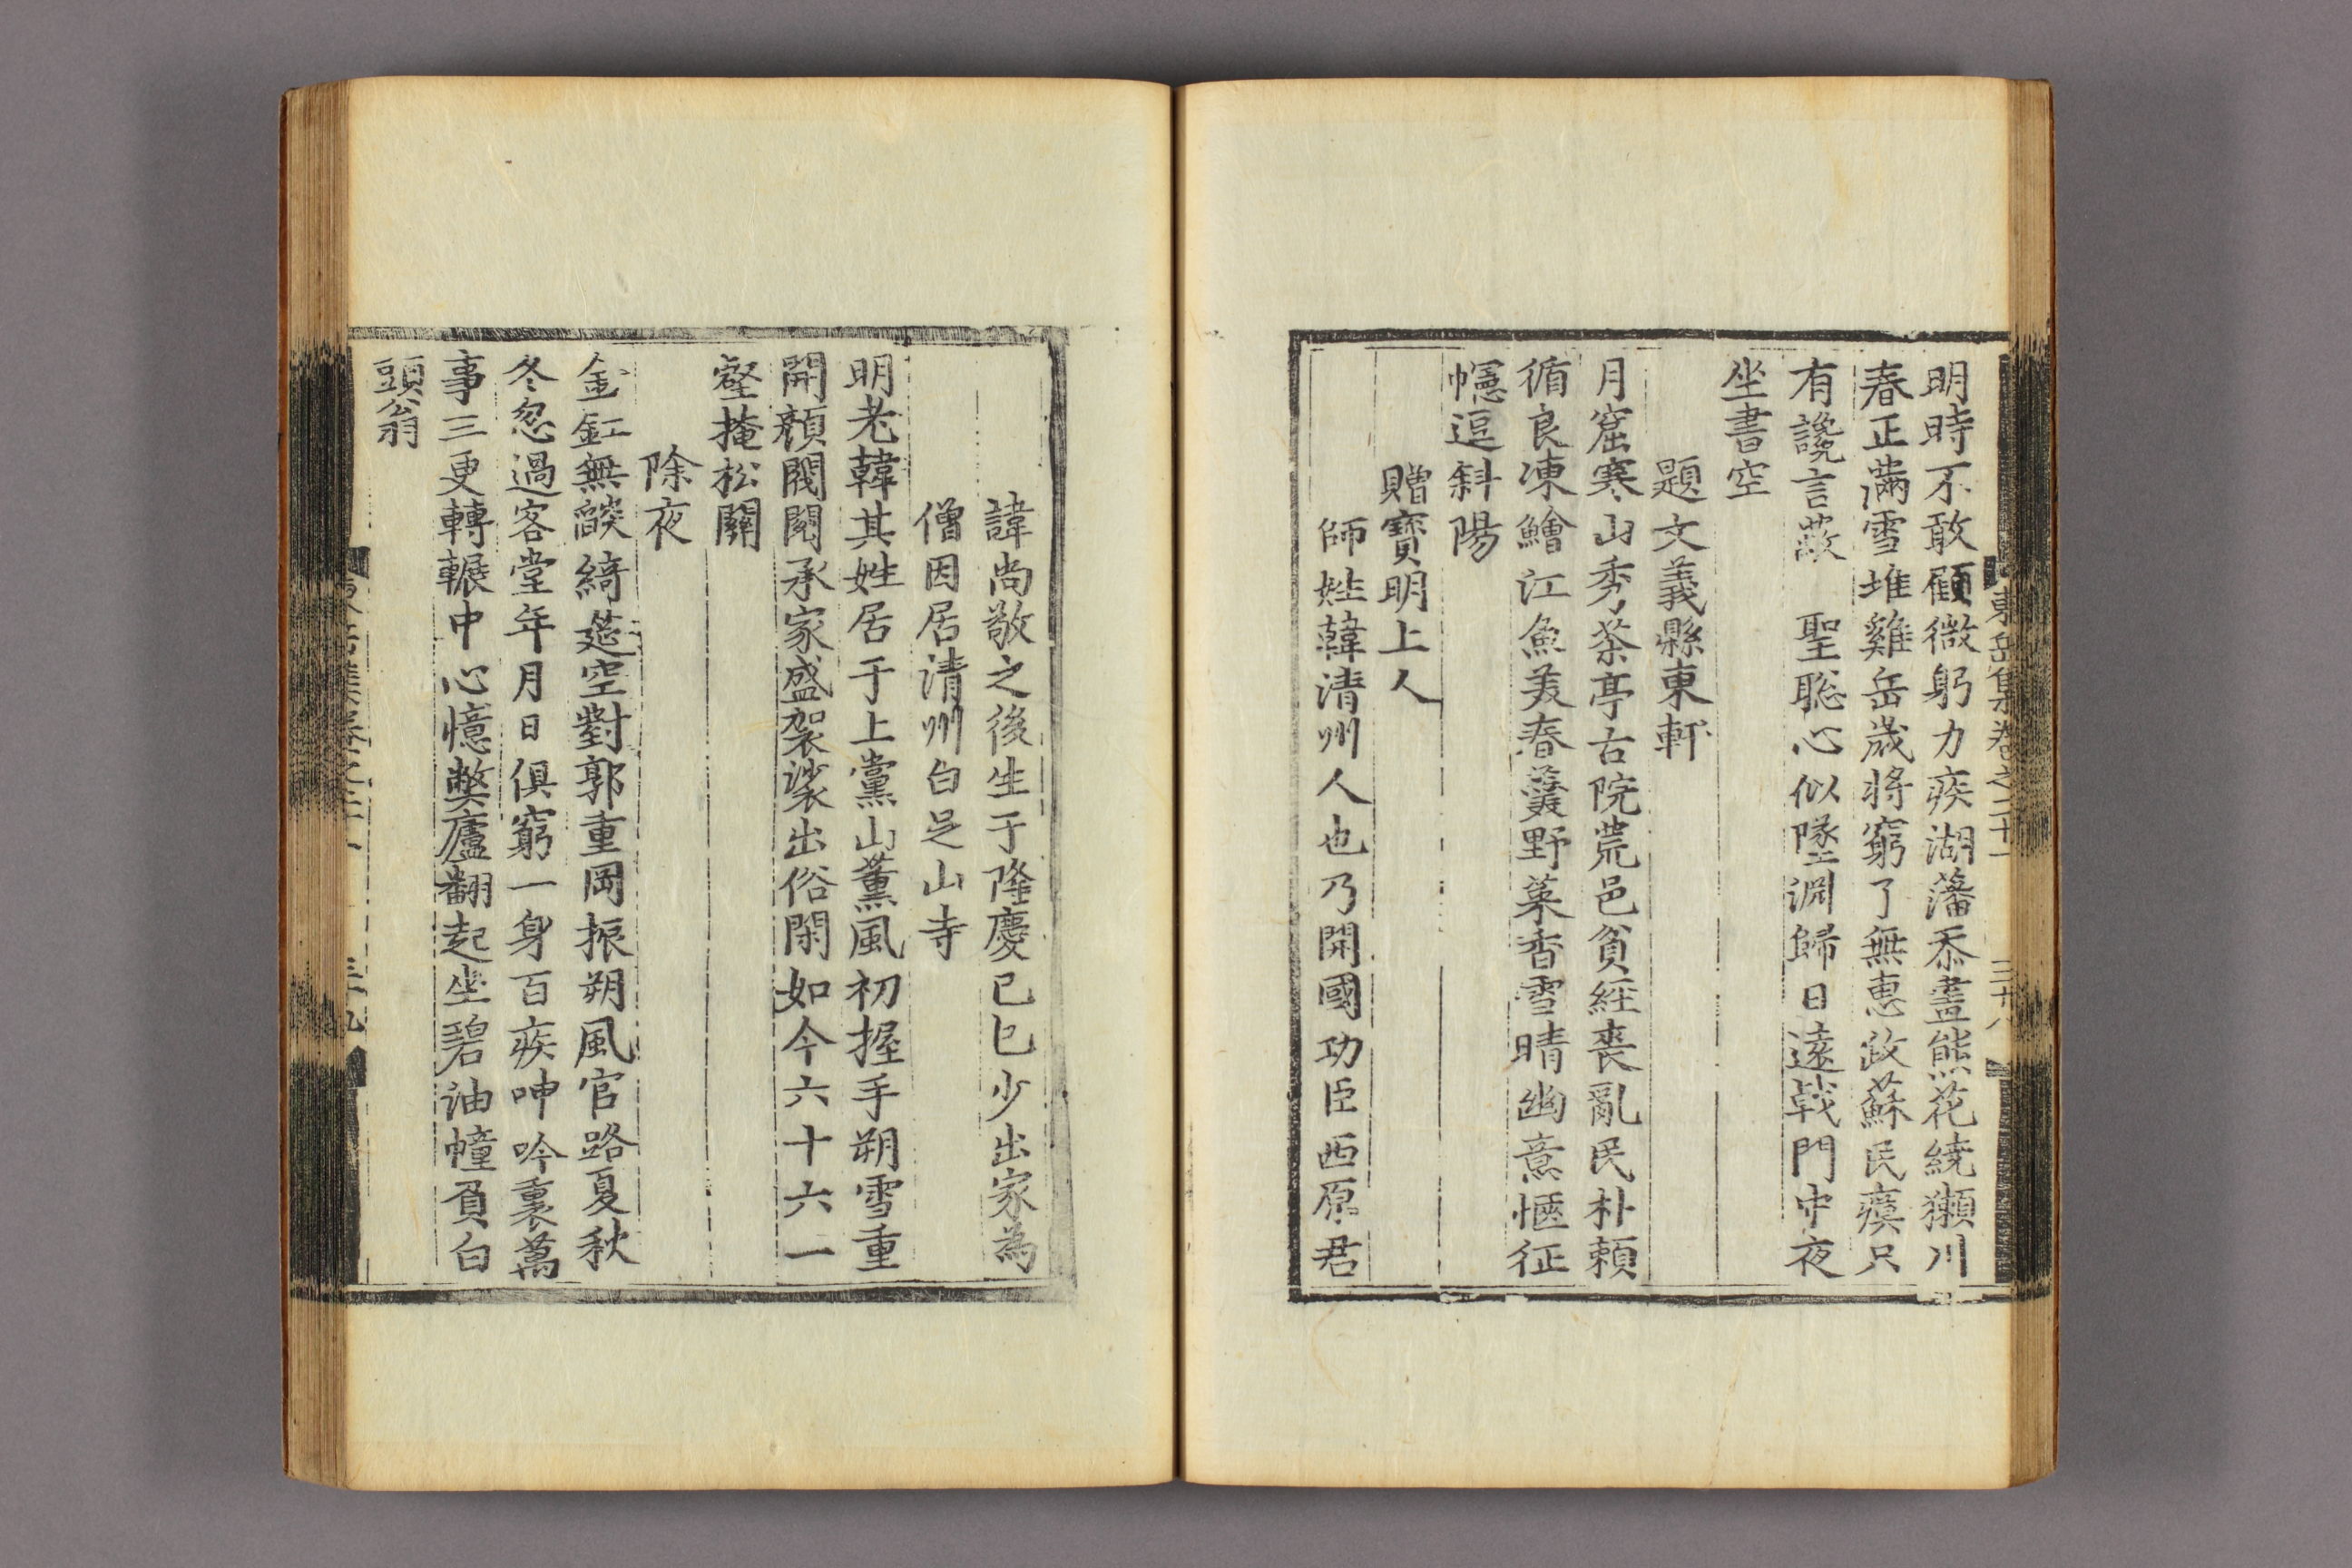 東岳集卷之二十一
三十八
明時不敢顧微躬力疾湖藩忝盡熊花繞獺川
春正滿雪堆雞岳歲將窮了無惠政蘇民瘼只
有讒言蔽　聖聡心似墜淵歸日遠戟門中夜
坐書空
題文義縣東軒
月窟寒山秀荼亭古院荒邑貧經喪亂民朴頼
循良凍鱠江魚美春羹野菜香雪晴幽意愜征
幰逗斜陽
贈寶明上人
師姓韓清州人也乃開國功臣西原君
諱尚敬之後生于隆慶己巳少出家為
僧因居清州白足山寺
明老韓其姓居于上黨山薰風初握手朔雪重
開顏閥閱承家盛袈裟出俗閑如今六十六一
壑掩松關
除夜
金釭無燄綺筵空對郭重岡振朔風官路夏秋
冬忽過客堂年月日俱窮一身百疾呻吟裏萬
事三更轉輾中心憶弊廬翻起坐碧油幢負白
頭翁